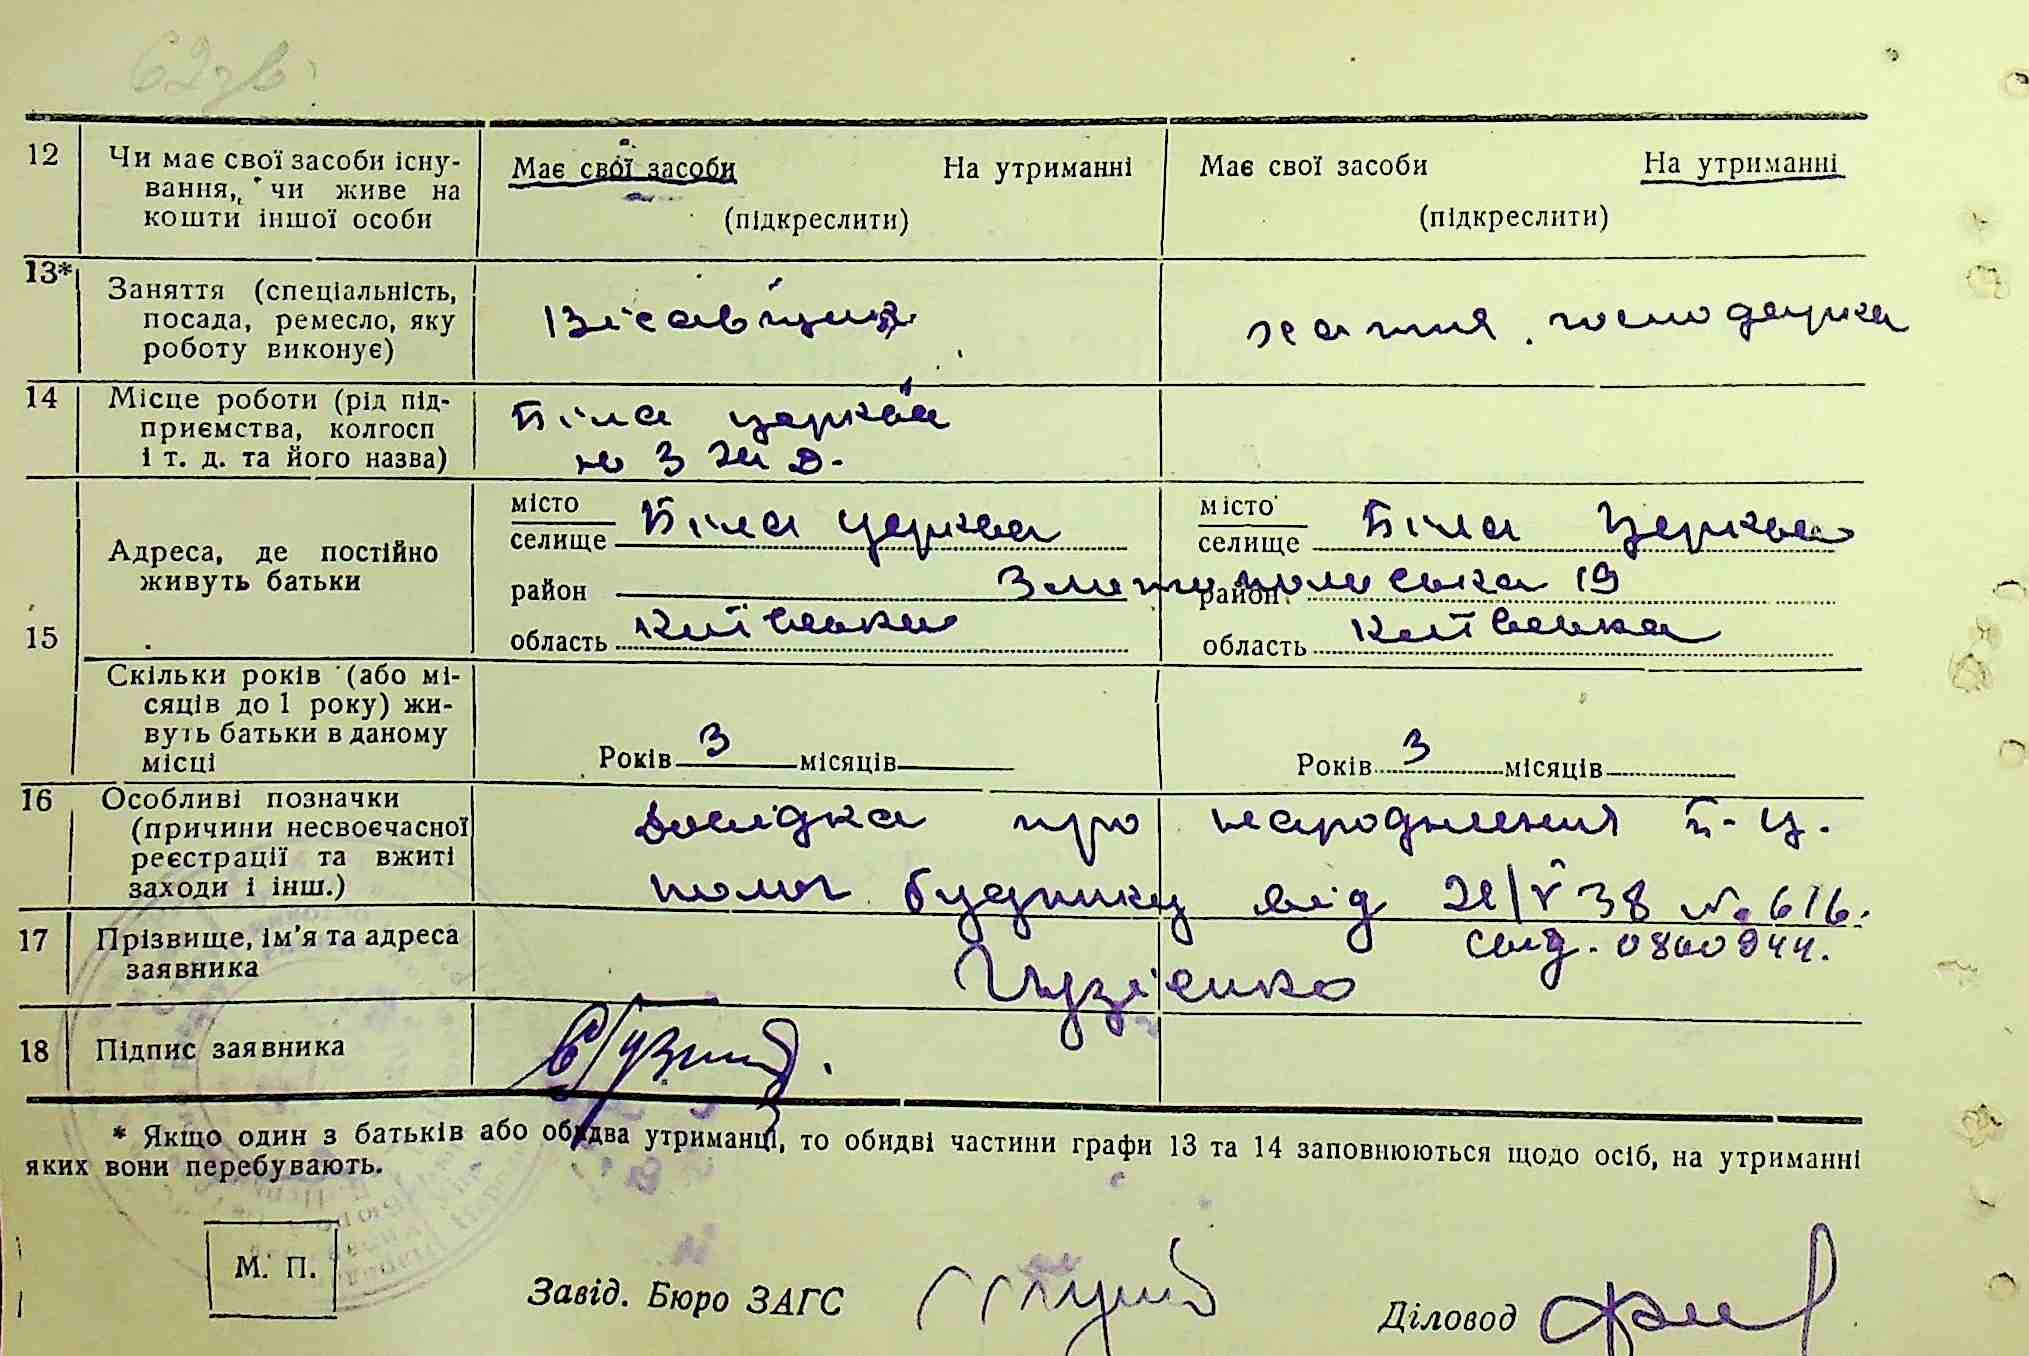 12 Чи має свої засоби існу-
вання, чи живе на
кошти іншої особи
Має свої засоби На утриманні
(підкреслити)
Має свої засоби На утриманні
(підкреслити)
13* Заняття (спеціальність,
посада, ремесло, яку
роботу виконує)
хатня господарка
14 Місце роботи (рід під-
приємства, колгосп
і т. д. та його назва)
Біла церква
15 Адреса, де постійно
живуть батьки
місто
селище Біла церква
район
область Київська
місто
селище Біла Церква
район
область Київська
19
Скільки років (або мі-
сяців до 1 року) жи-
вуть батьки в даному
місці
Років 3 місяців
Років 3 місяців
16 Особливі позначки
(причини несвоєчасної
реєстрації та вжиті
заходи і інш.)
Довідка про народження Б-Ц.
полог будинку від 21/V 38 № 616.
17 Прізвище, ім'я та адреса
заявника
свід.
18 Підпис заявника
* Якщо один з батьків або обидва утриманці, то обидві частини графи 13 та 14 заповнюються щодо осіб, на утриманні
яких вони перебувають.
М. П.
Завід. Бюро ЗАГС
Діловод